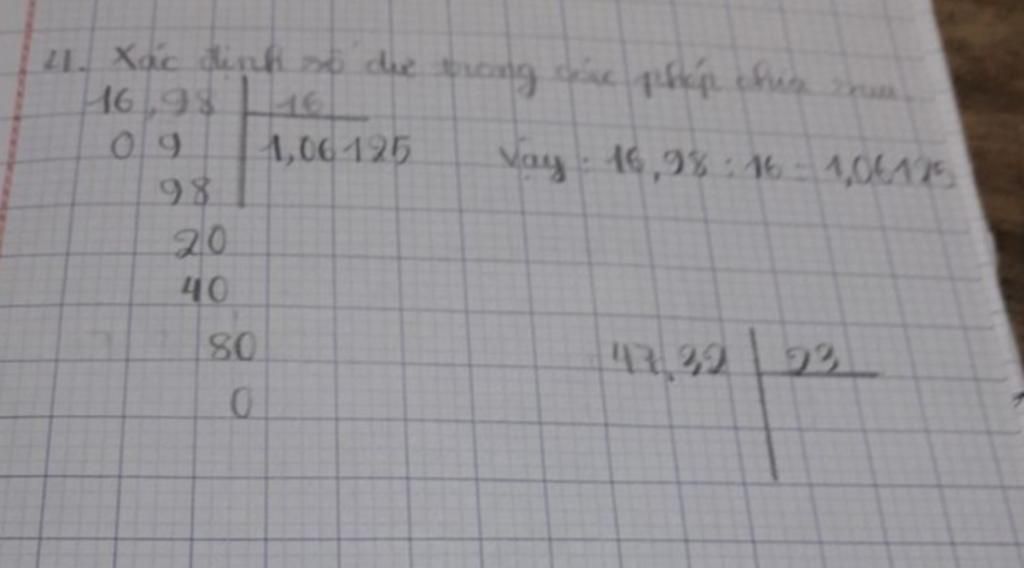 4. Xác định số dư trong các phép chia sau
16,98 16
0 9 1,06125 Vậy: 16,98 : 16 = 1,06125
98
20
40
80 47,39 23
0